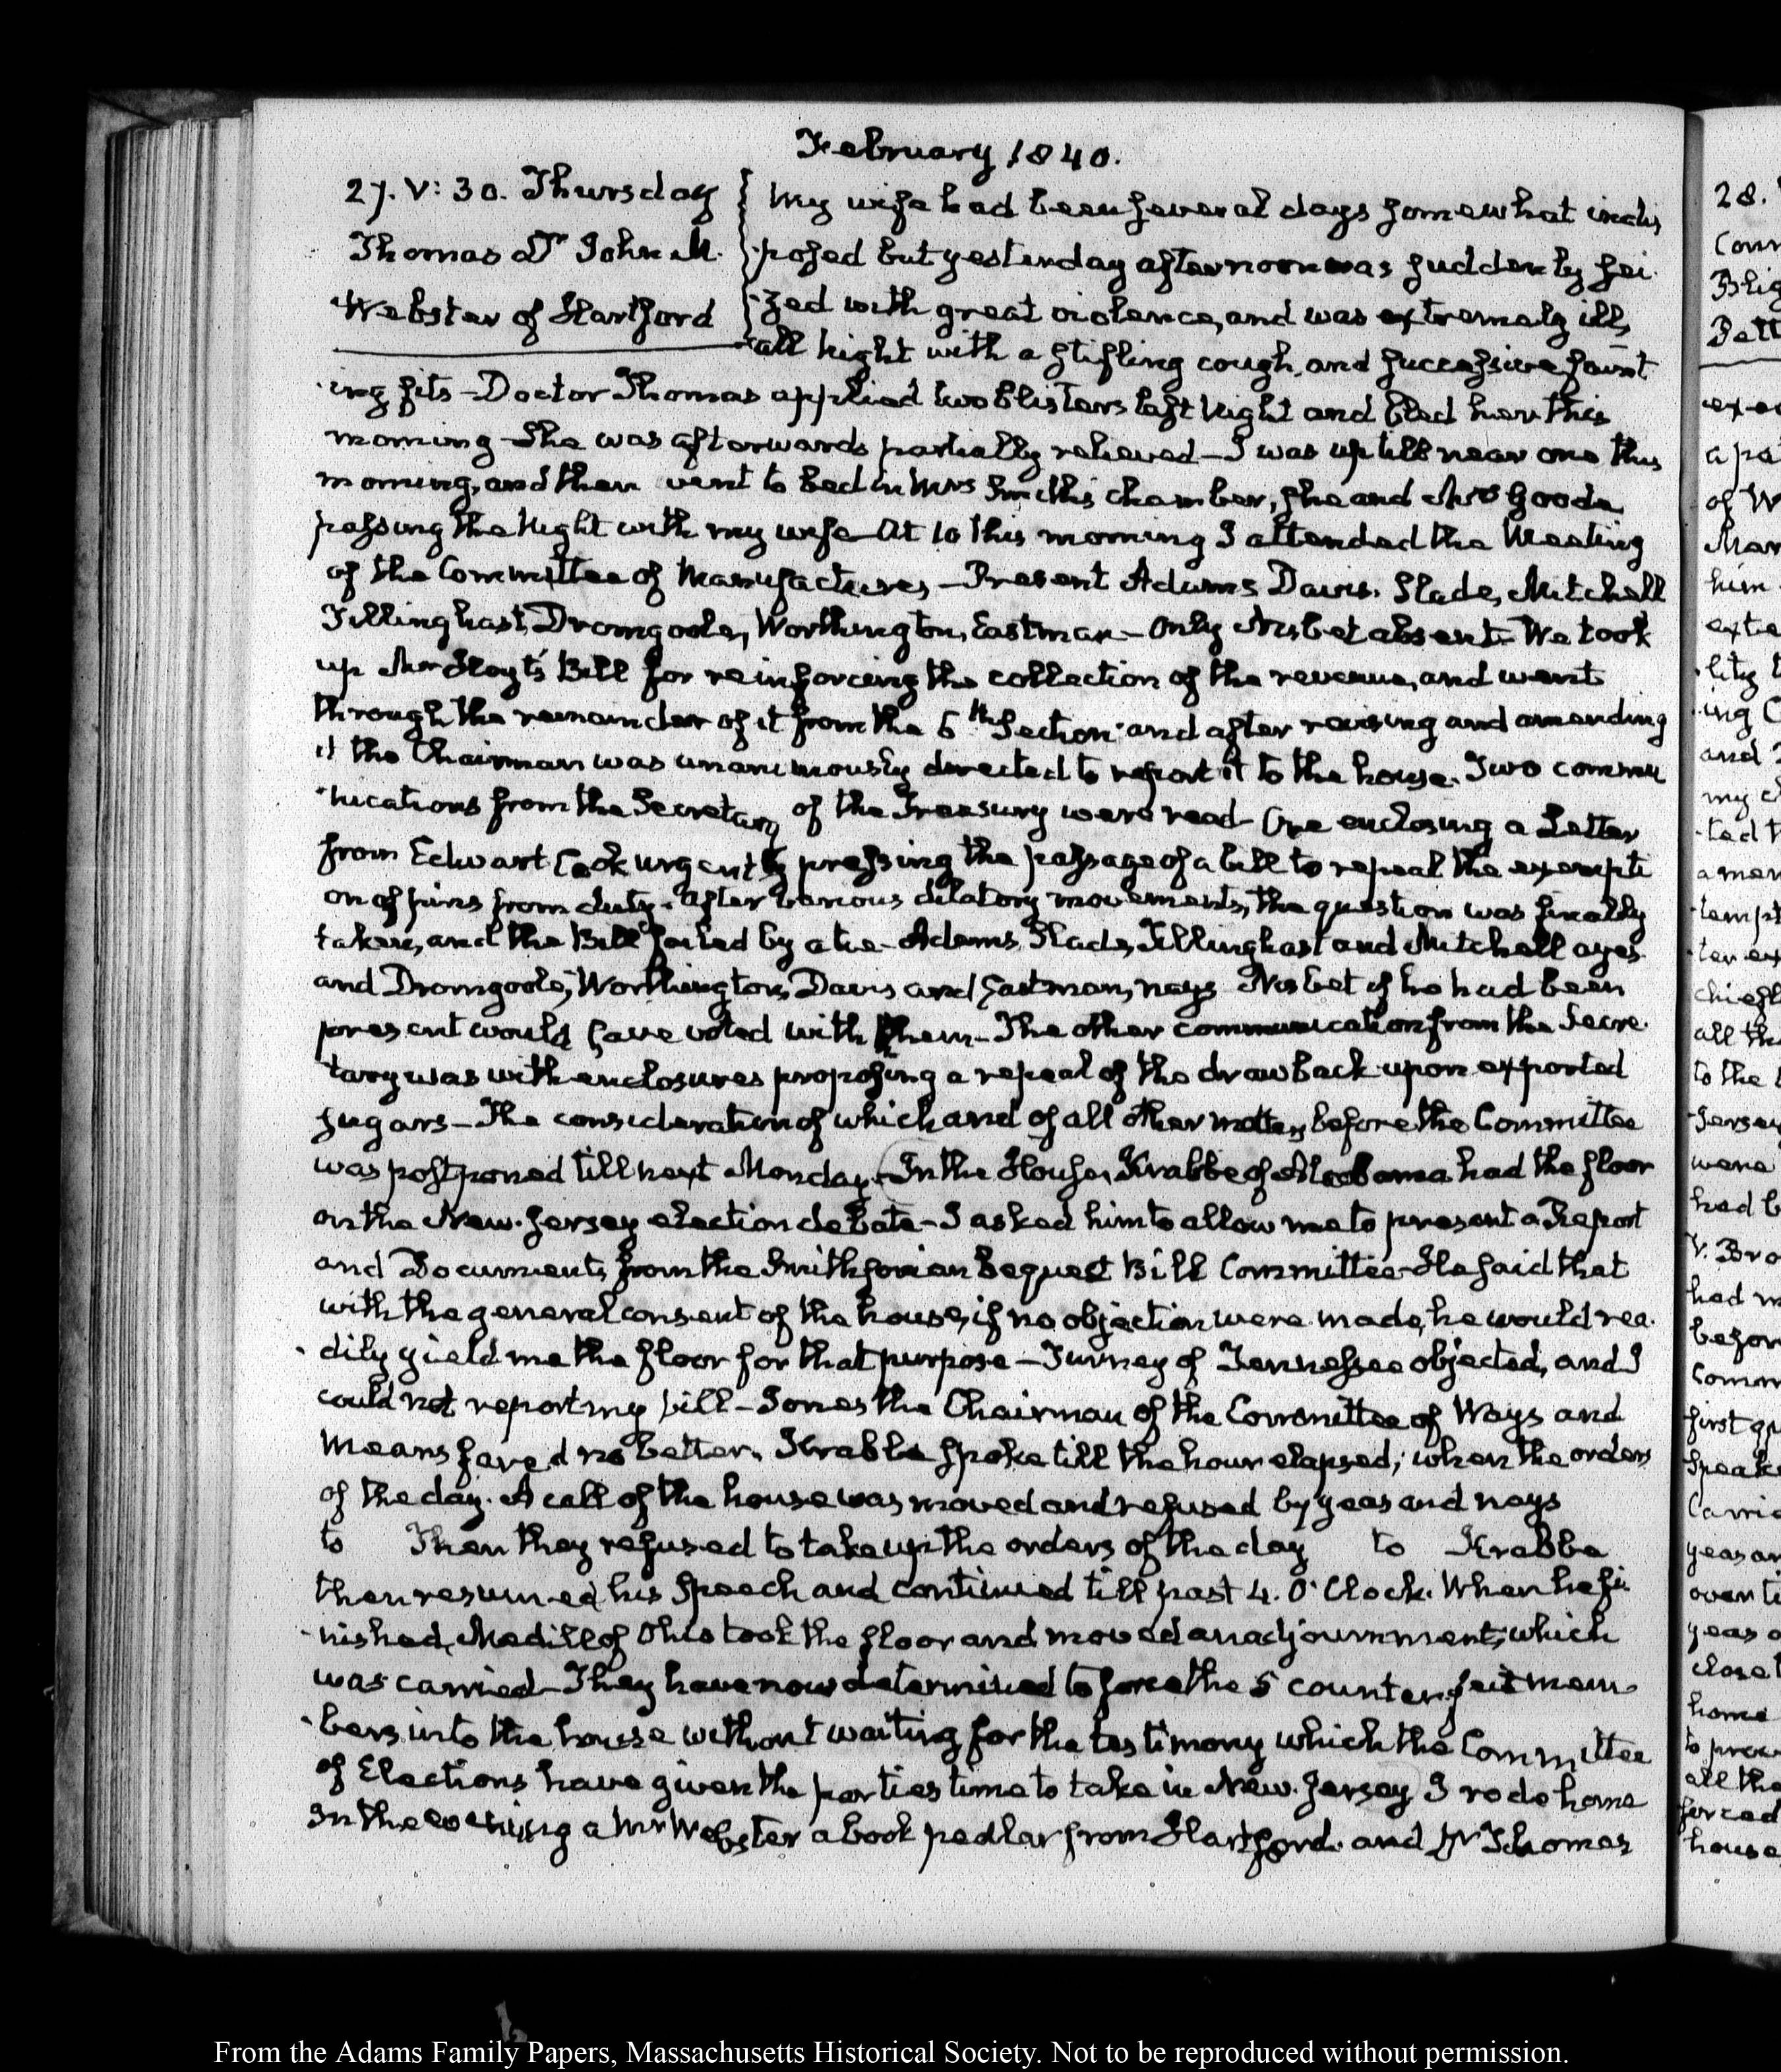 February 1840.
27. V: 30. Thursday
Thomas Dr John M.
Webster of Hartford
My wife had been several days somewhat indis
posed but yesterday afternoon was suddenly sei
zed with great violence, and was extremely ill,
all Night with a stifling cough, and successive faint
ing fits - Doctor Thomas applied two blisters last Night and bled her this
morning - She was afterwards partially relieved - I was up till near one this
morning, and then went to bed in Mrs Smith's chamber, she and Mrs Goods
passing the Night with my wife - At 10 this morning I attended the Meeting
of the Committee of Manufactures, - Present Adams Davis. Slade, Mitchell
Tillinghast, Dromgoole, Worthington, Eastman - Only Nisbet absent - We took
up Mr Hoyt's Bill for reinforcing the collection of the revenue, and went
through the remainder of it from the 6th Section and after revising and amending
it the Chairman was unanimously directed to report it to the house. Two commu
nications from the Secretary of the Treasury were read - One enclosing a Letter
from Edward Cook urgently pressing the passage of a bill to repeal the exempti
on of pins from duty. After various dilatory movements, the question was finally
taken, and the Bill failed by a tie - Adams, Slade, Tillinghast and Mitchell ayes
and Dromgoole, Worthington, Davis and Eastman, nays Nisbet if he had been
present would have voted with them - The other communication from the Secre
tary was with enclosures proposing a repeal of the drawback upon exported
sugars - The consideration of which and of all other matters before the Committee
was postponed till next Monday. In the House, Krabbe of Alabama had the floor
on the New-Jersey election debate - I asked him to allow me to present a Report
and Documents from the Smithsonian Bequest Bill Committee - He said that
with the general consent of the house, if no objection were made, he would rea
dily yield me the floor for that purpose - Turney of Tennessee objected, and I
could not report my bill - Jones the Chairman of the Committee of Ways and
Means fared no better. Krabbe spoke till the hour elapsed; when the orders
of the day. A call of the house was moved and refused by yeas and nays
to Then they refused to take up the orders of the day to Krabbe
then resumed his Speech and continued till past 4. O'Clock. When he fi
nished, Medill of Ohio took the floor and moved an adjournment, which
was carried - They have now determined to force the 5 counterfeit mem
bers into the house without waiting for the testimony which the Committee
of Elections have given the parties time to take in New-Jersey I rode home
In the evening a Mr Webster a book pedlar from Hartford. and Dr Thomas
28.